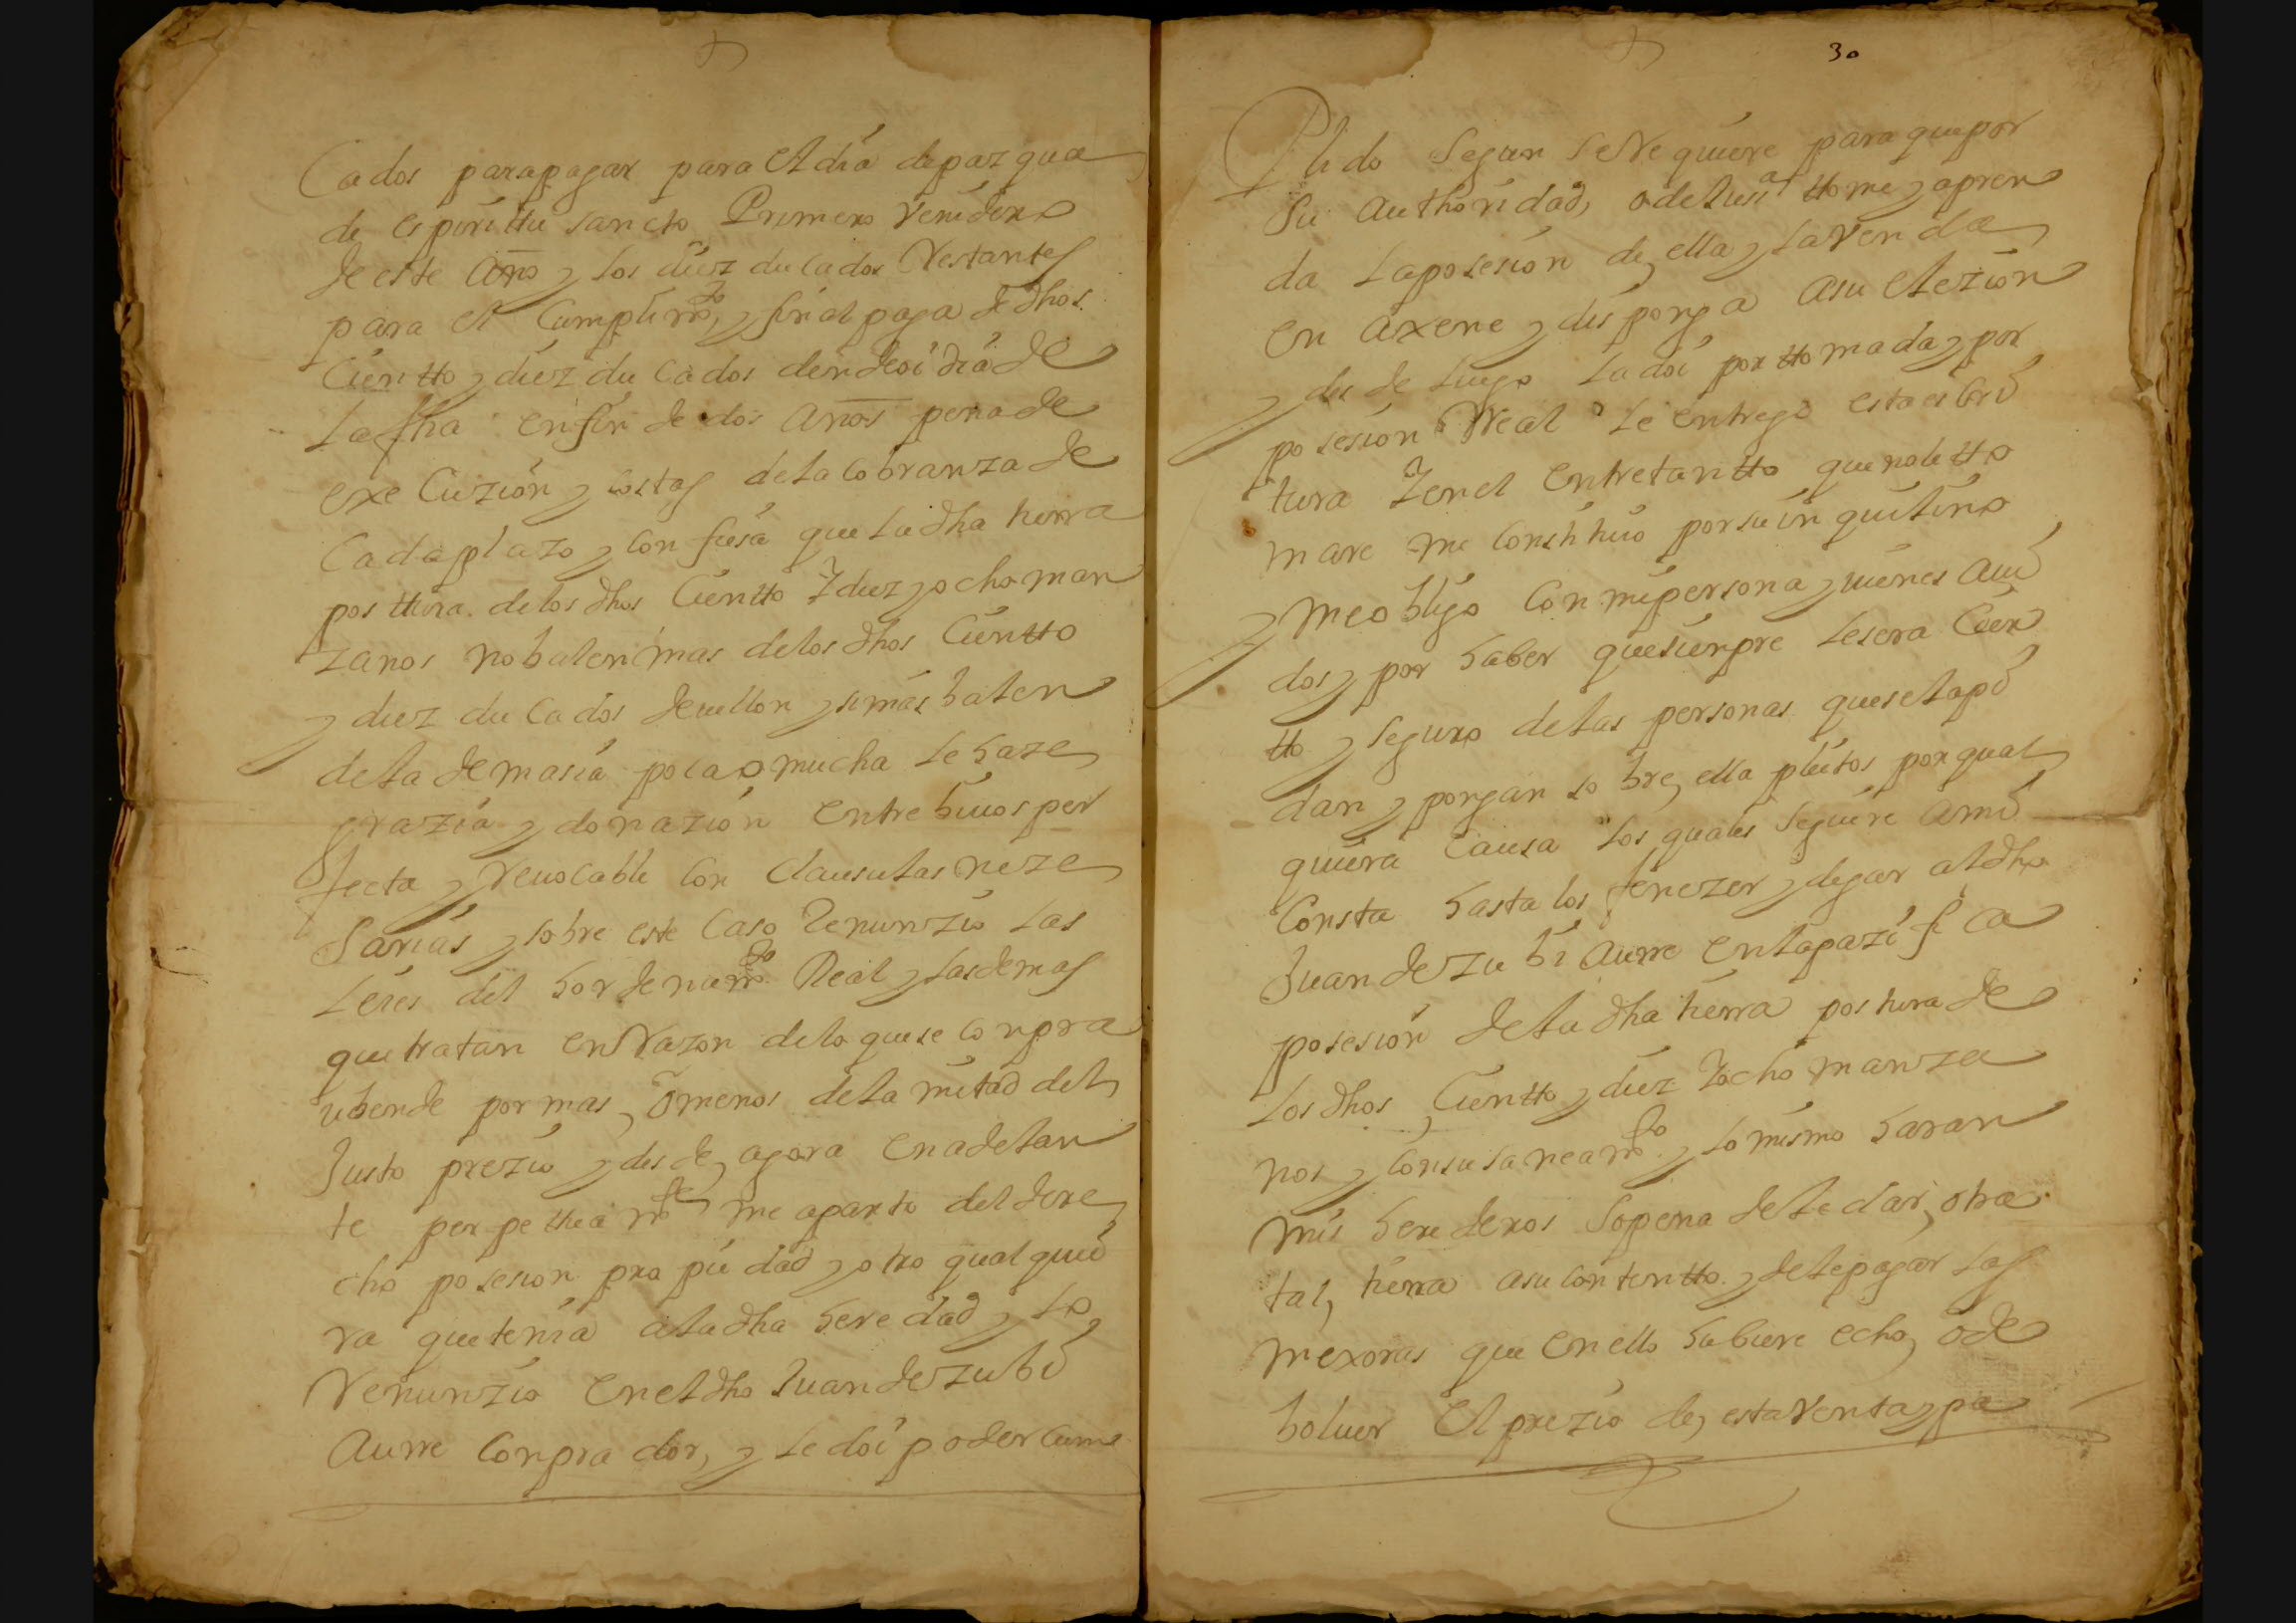 Cados parapagar para el dia depazqua
de espirittu sancto Primero venidero
de este año y los diez ducados Restantes
para el Cumplimto y final paga de dhos
Cientto y diez du cados dendeoi dia de
La fha en fin de dos años pena de
exe Cuzion y costas dela cobranza de
Cada plazo y Confiesa que la dha tierra
posttura delos dhos Cientto y diez y ocho man
zanos no balen mas delos dhos Cientto
y diez du Cados de vellon y si mas balen
dela demasia poca o mucha le haze
grazia y donazion entre biuos per
fecta y Reuocable con Clausulas neze
sarias y sobre este Caso Renunzio las
Leies del hordenamto Real y las demas
que tratan en Razon delo que se conpra
ubende por mas, o menos dela mitad del
Justo prezio y desde agora en adelan
te perpettuamte me aparto del dere
cho posesion propiedad y otro qualquie
ra que tenia a la dha heredad y lo
Renunzio en el dho Juan de zubi
Aurre Conprador, y le doi poder cum
30
Plido segun se Requiere para que por
su authoridad, o de Justa ttome y apren
da la posesion de ella y la venda
en axene y disponga asu elezion
y des de luego la doi por ttomada y por
posesion Real le entrego esta escri
tura y en el entretantto que no la tto
mare me constituio por su inquilino
y me obligo Con mi persona y uienes aui
dos y por haber que sienpre le sera Cier
tto y seguro delas personas que se la pi
dan y pongan sobre ella pleitos por qual
quiera Causa los quales seguire ami
Consta hasta los fenezer y degar al dho
Juan de zu bi aurre en la pazifica
posesion de la dha tierra postura de
Los dhos Cientto y diez y ocho manza
nos y con su saneamto y lo mismo haran
mis herederos so pena de le dar otra
tal, tierra asu contentto y de le pagar las
mexoras que en ello hubiere echo, o de
boluer el prezio de esta venta y pa